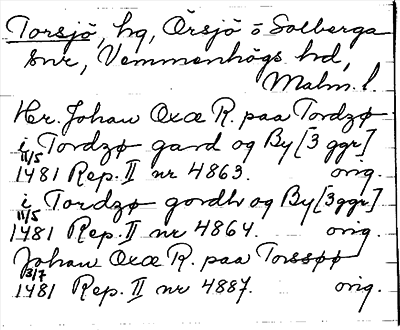 Torsjö, hg, Örsjö o Solberga
snr, Vemmenhögs hd,
Malm. l.
Hr. Johan Oxæ R. paa Tordzø
i Tordzø gard og By [3 ggr]
11/5
1481 Rep. II nr 4863. orig.
i Tordzø gordh og By [3 ggr]
11/5
1481 Rep. II nr 4864. orig.
Johan Oxæ R. paa Torssøø
3/7
1481 Rep. II nr 4887. orig.